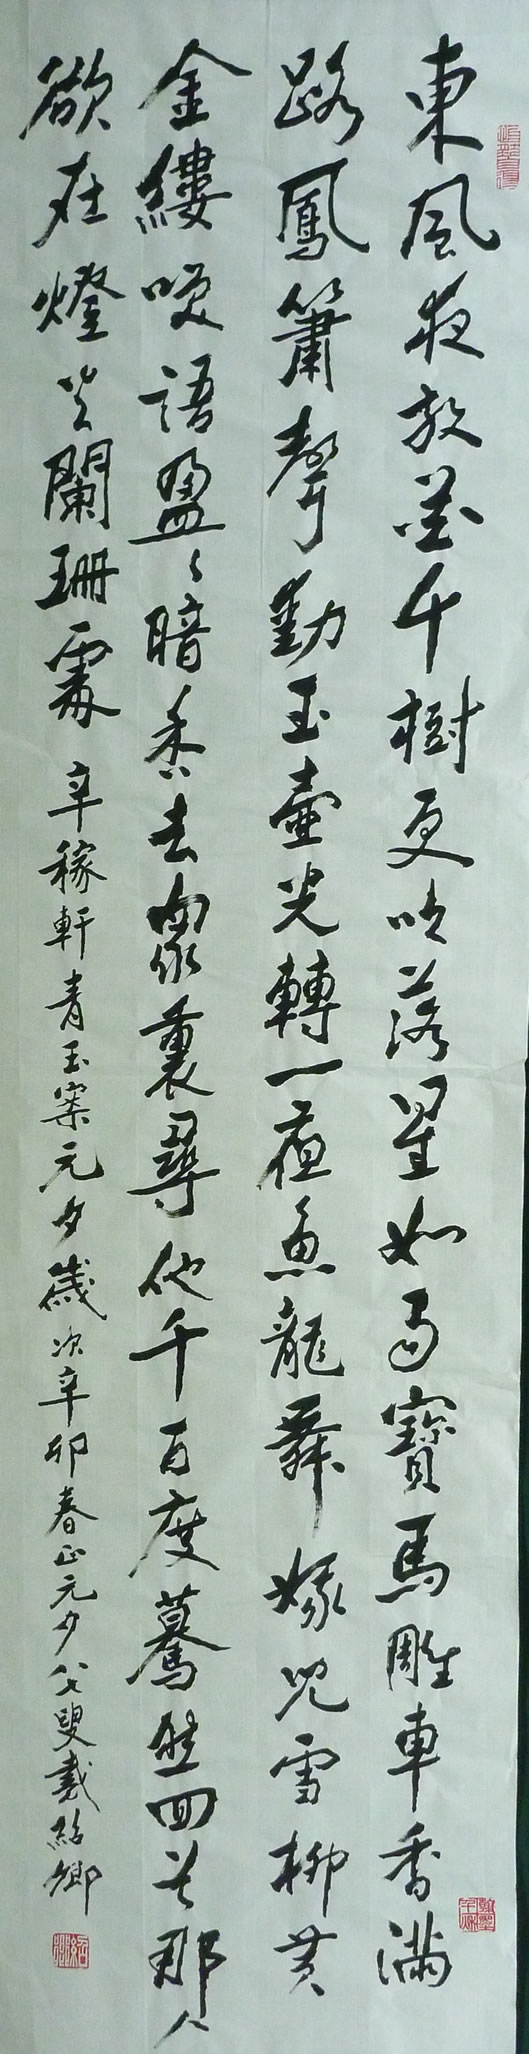 東風夜放花千樹更吹落星如雨寶馬雕車香滿
路鳳簫聲動玉壺光轉一夜魚龍舞蛾兒雪柳黃
金縷笑語盈〻暗香去眾裏尋他千百度驀然回首那人
卻在燈火闌珊處 辛稼軒青玉案元夕歲次辛卯春正元夕八七叟戴紹卿